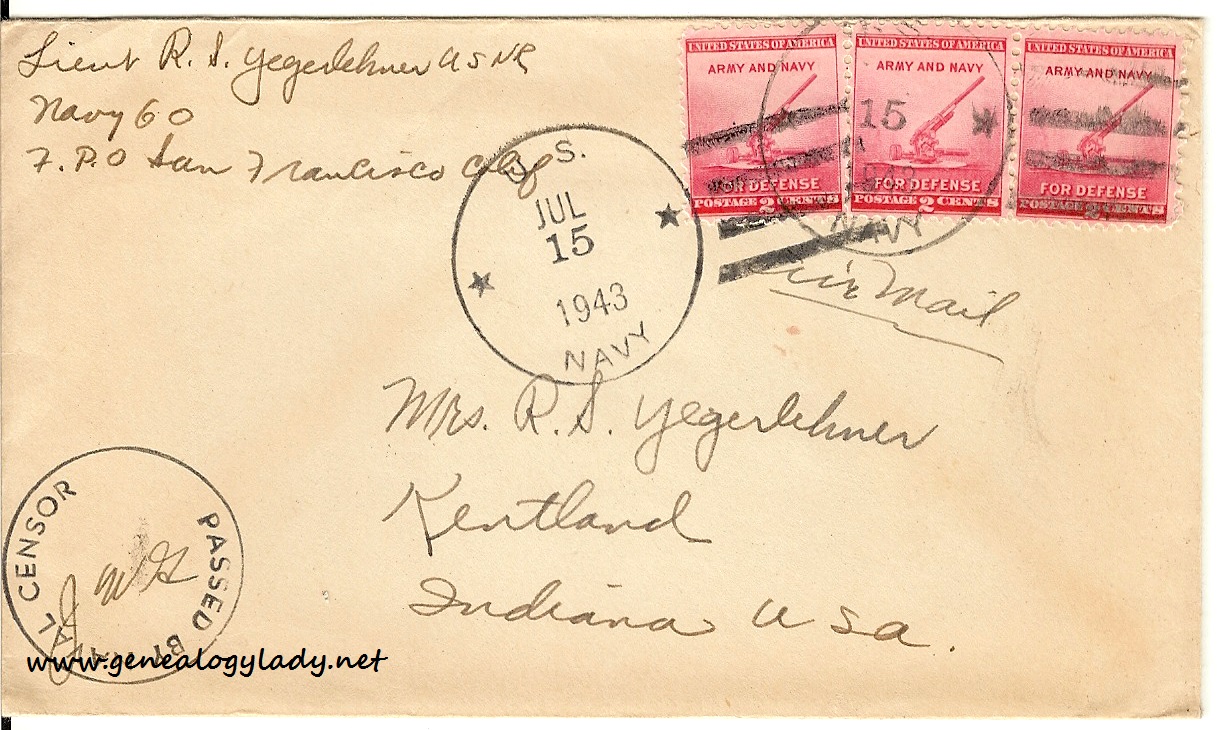 Lieut R. S. Yegerlehner USNR
Navy 60
F.P.O San Francisco Calif
UNITED STATES OF AMERICA
ARMY AND NAVY
FOR DEFENSE
POSTAGE 2 CENTS
UNITED STATES OF AMERICA
ARMY AND NAVY
FOR DEFENSE
POSTAGE 2 CENTS
UNITED STATES OF AMERICA
ARMY AND NAVY
FOR DEFENSE
POSTAGE 2 CENTS
15
1943
NAVY
U. S.
JUL
15
1943
NAVY
Air Mail
Mrs. R. S. Yegerlehner
Kentland
Indiana USA.
PASSED BY NAVAL CENSOR
www.genealogylady.net